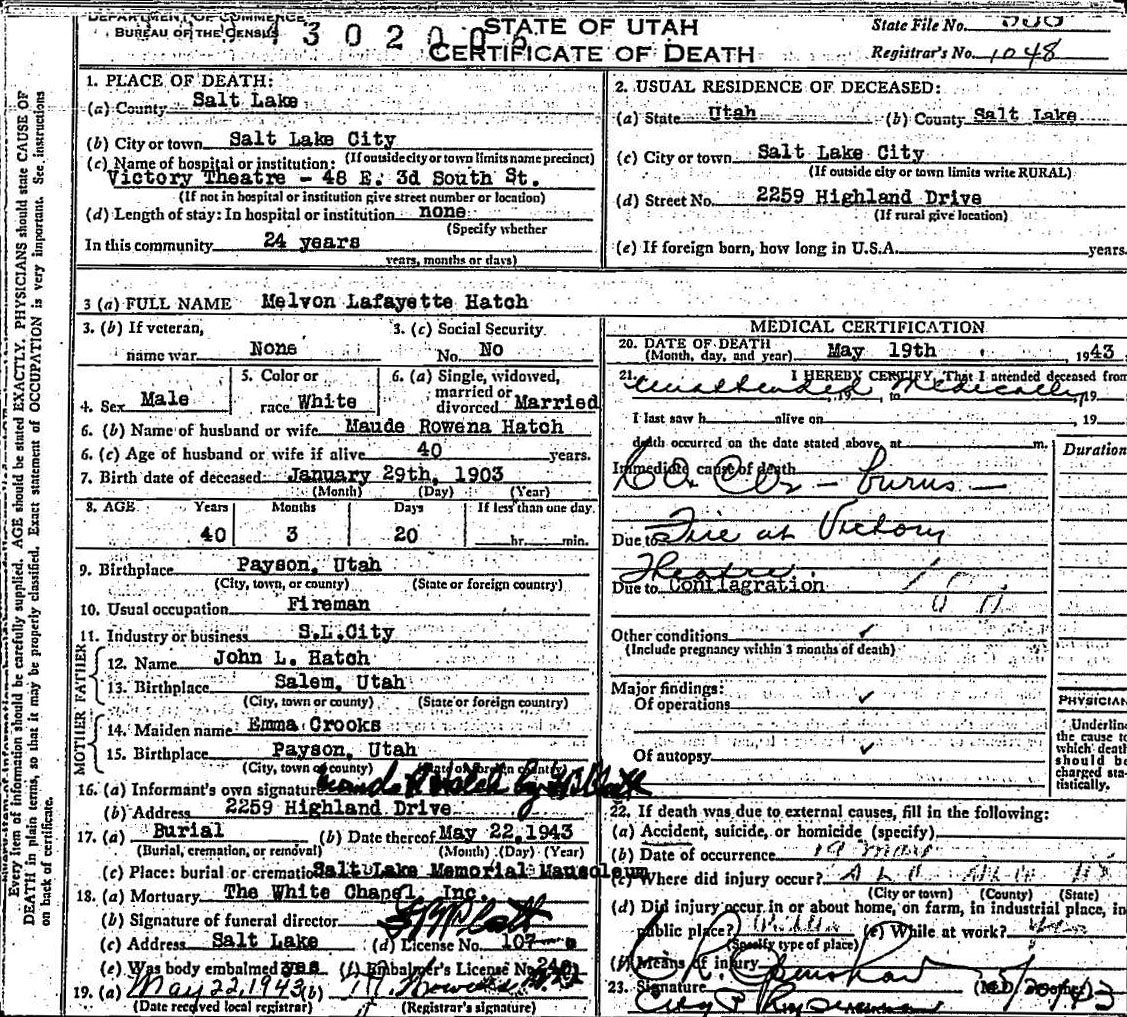 DEPARTMENT OF COMMERCE
BUREAU OF THE CENSUS
STATE OF UTAH
CERTIFICATE OF DEATH
State File No.
Registrar's No. 1048
Every item of information should be carefully supplied. AGE should be stated EXACTLY. PHYSICIANS should state CAUSE OF
DEATH in plain terms, so that it may be properly classified. Exact statement of OCCUPATION is very important. See instructions
on back of certificate.
1. PLACE OF DEATH:
(a) County Salt Lake
(b) City or town Salt Lake City
(If outside city or town limits name precinct)
(c) Name of hospital or institution:
Victory Theatre - 48 E. 3d South St.
(If not in hospital or institution give street number or location)
(d) Length of stay: In hospital or institution none
(Specify whether
In this community 24 years
years, months or days)
2. USUAL RESIDENCE OF DECEASED:
(a) State Utah (b) County Salt Lake
(c) City or town Salt Lake City
(If outside city or town limits write RURAL)
(d) Street No. 2259 Highland Drive
(If rural give location)
(e) If foreign born, how long in U.S.A. years.
3 (a) FULL NAME Melvon Lafayette Hatch
3. (b) If veteran, name war None
3. (c) Social Security No. No
4. Sex Male
5. Color or race White
6. (a) Single, widowed, married or divorced Married
6. (b) Name of husband or wife Maude Rowena Hatch
6. (c) Age of husband or wife if alive 40 years.
7. Birth date of deceased January 29th, 1903
(Month) (Day) (Year)
8. AGE Years Months Days If less than one day
40 3 20 hr. min.
9. Birthplace Payson, Utah
(City, town, or county) (State or foreign country)
10. Usual occupation Fireman
11. Industry or business S.L.City
FATHER
12. Name John L. Hatch
13. Birthplace Salem, Utah
(City, town or county) (State or foreign country)
MOTHER
14. Maiden name Emma Crooks
15. Birthplace Payson, Utah
(City, town or county) (State or foreign country)
16. (a) Informant's own signature
(b) Address 2259 Highland Drive
17. (a) Burial (b) Date thereof May 22, 1943
(Burial, cremation, or removal) (Month) (Day) (Year)
(c) Place: burial or cremation Salt Lake Memorial Mausoleum
18. (a) Mortuary The White Chapel, Inc.
(b) Signature of funeral director
(c) Address Salt Lake (d) License No. 107
(e) Was body embalmed yes (f) Embalmer's License No.
19. (a) May 22, 1943 (b)
(Date received local registrar) (Registrar's signature)
MEDICAL CERTIFICATION
20. DATE OF DEATH
(Month, day, and year) May 19th 1943
21. I HEREBY CERTIFY, That I attended deceased from
unattended medically , 19 , to , 19
I last saw h alive on , 19
death occurred on the date stated above, at m.
Duration
Immediate cause of death
- burns -
Due to Fire at Victory
Theatre.
Due to Conflagration
Other conditions ✓
(Include pregnancy within 3 months of death)
Major findings:
Of operations ✓
Of autopsy ✓
PHYSICIAN
Underline
the cause to
which death
should be
charged sta-
tistically.
22. If death was due to external causes, fill in the following:
(a) Accident, suicide, or homicide (specify)
(b) Date of occurrence 19 May
(c) Where did injury occur?
(City or town) (County) (State)
(d) Did injury occur in or about home, on farm, in industrial place, in
public place? (e) While at work?
(Specify type of place)
(f) Means of injury
23. Signature